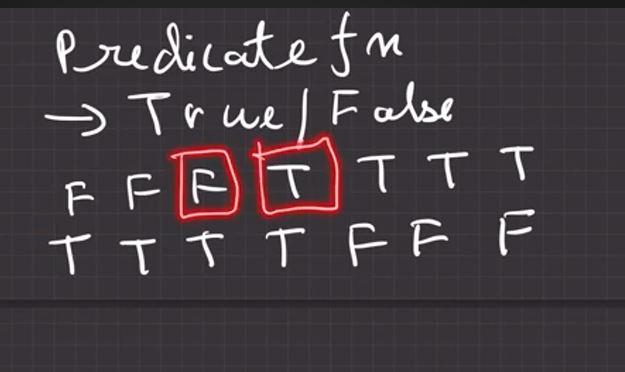 Predicate fn
→ True/False
F F F T T T T
T T T T F F F